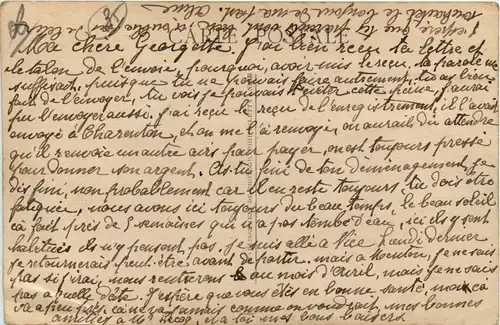 CARTE POSTALE
Ma chère Georgette, j'ai bien reçu ta lettre et
le talon de l'envoie, pourquoi, avoir mis le reçu, ta parole me
suffisait, puisque tu ne pouvais faire autrement, tu as bien
fait de l'envoyer, tu vois je pouvais t'éviter cette peine, j'aurai
pu l'envoyer aussi. j'ai reçu le reçu de l'enregistrement, il l'avait
envoyé à Charenton, et on me l'a renvoyé, on aurait dû attendre
qu'il renvoie un autre avis pour payer, on est toujours pressé
pour donner son argent. As-tu fini de ton déménagement, je
dis fini, non probablement car il en reste toujours, tu dois être
fatiguée, nous avons ici toujours du beau temps, le beau soleil
ça fait près de 5 semaines qui n'a pas tombé d'eau, ici ils y sont
habitués ils n'y pensent pas, je suis allé a Nice Lundi dernier
je retournerais peut-être avant de partir, mais a Menton, je ne sais
pas si j'irai, nous rentrerons au mois d'Avril, mais je ne sais
pas a quelle date. J'espère que vous êtes en bonne santé, moi ça
va a peu près, ça ne va jamais comme on voudrait, mes bonnes
amitiés a Mr et a toi mes bons baisers
j'espère que tes parents vont
souhaiter le bonjour de ma part. Aline